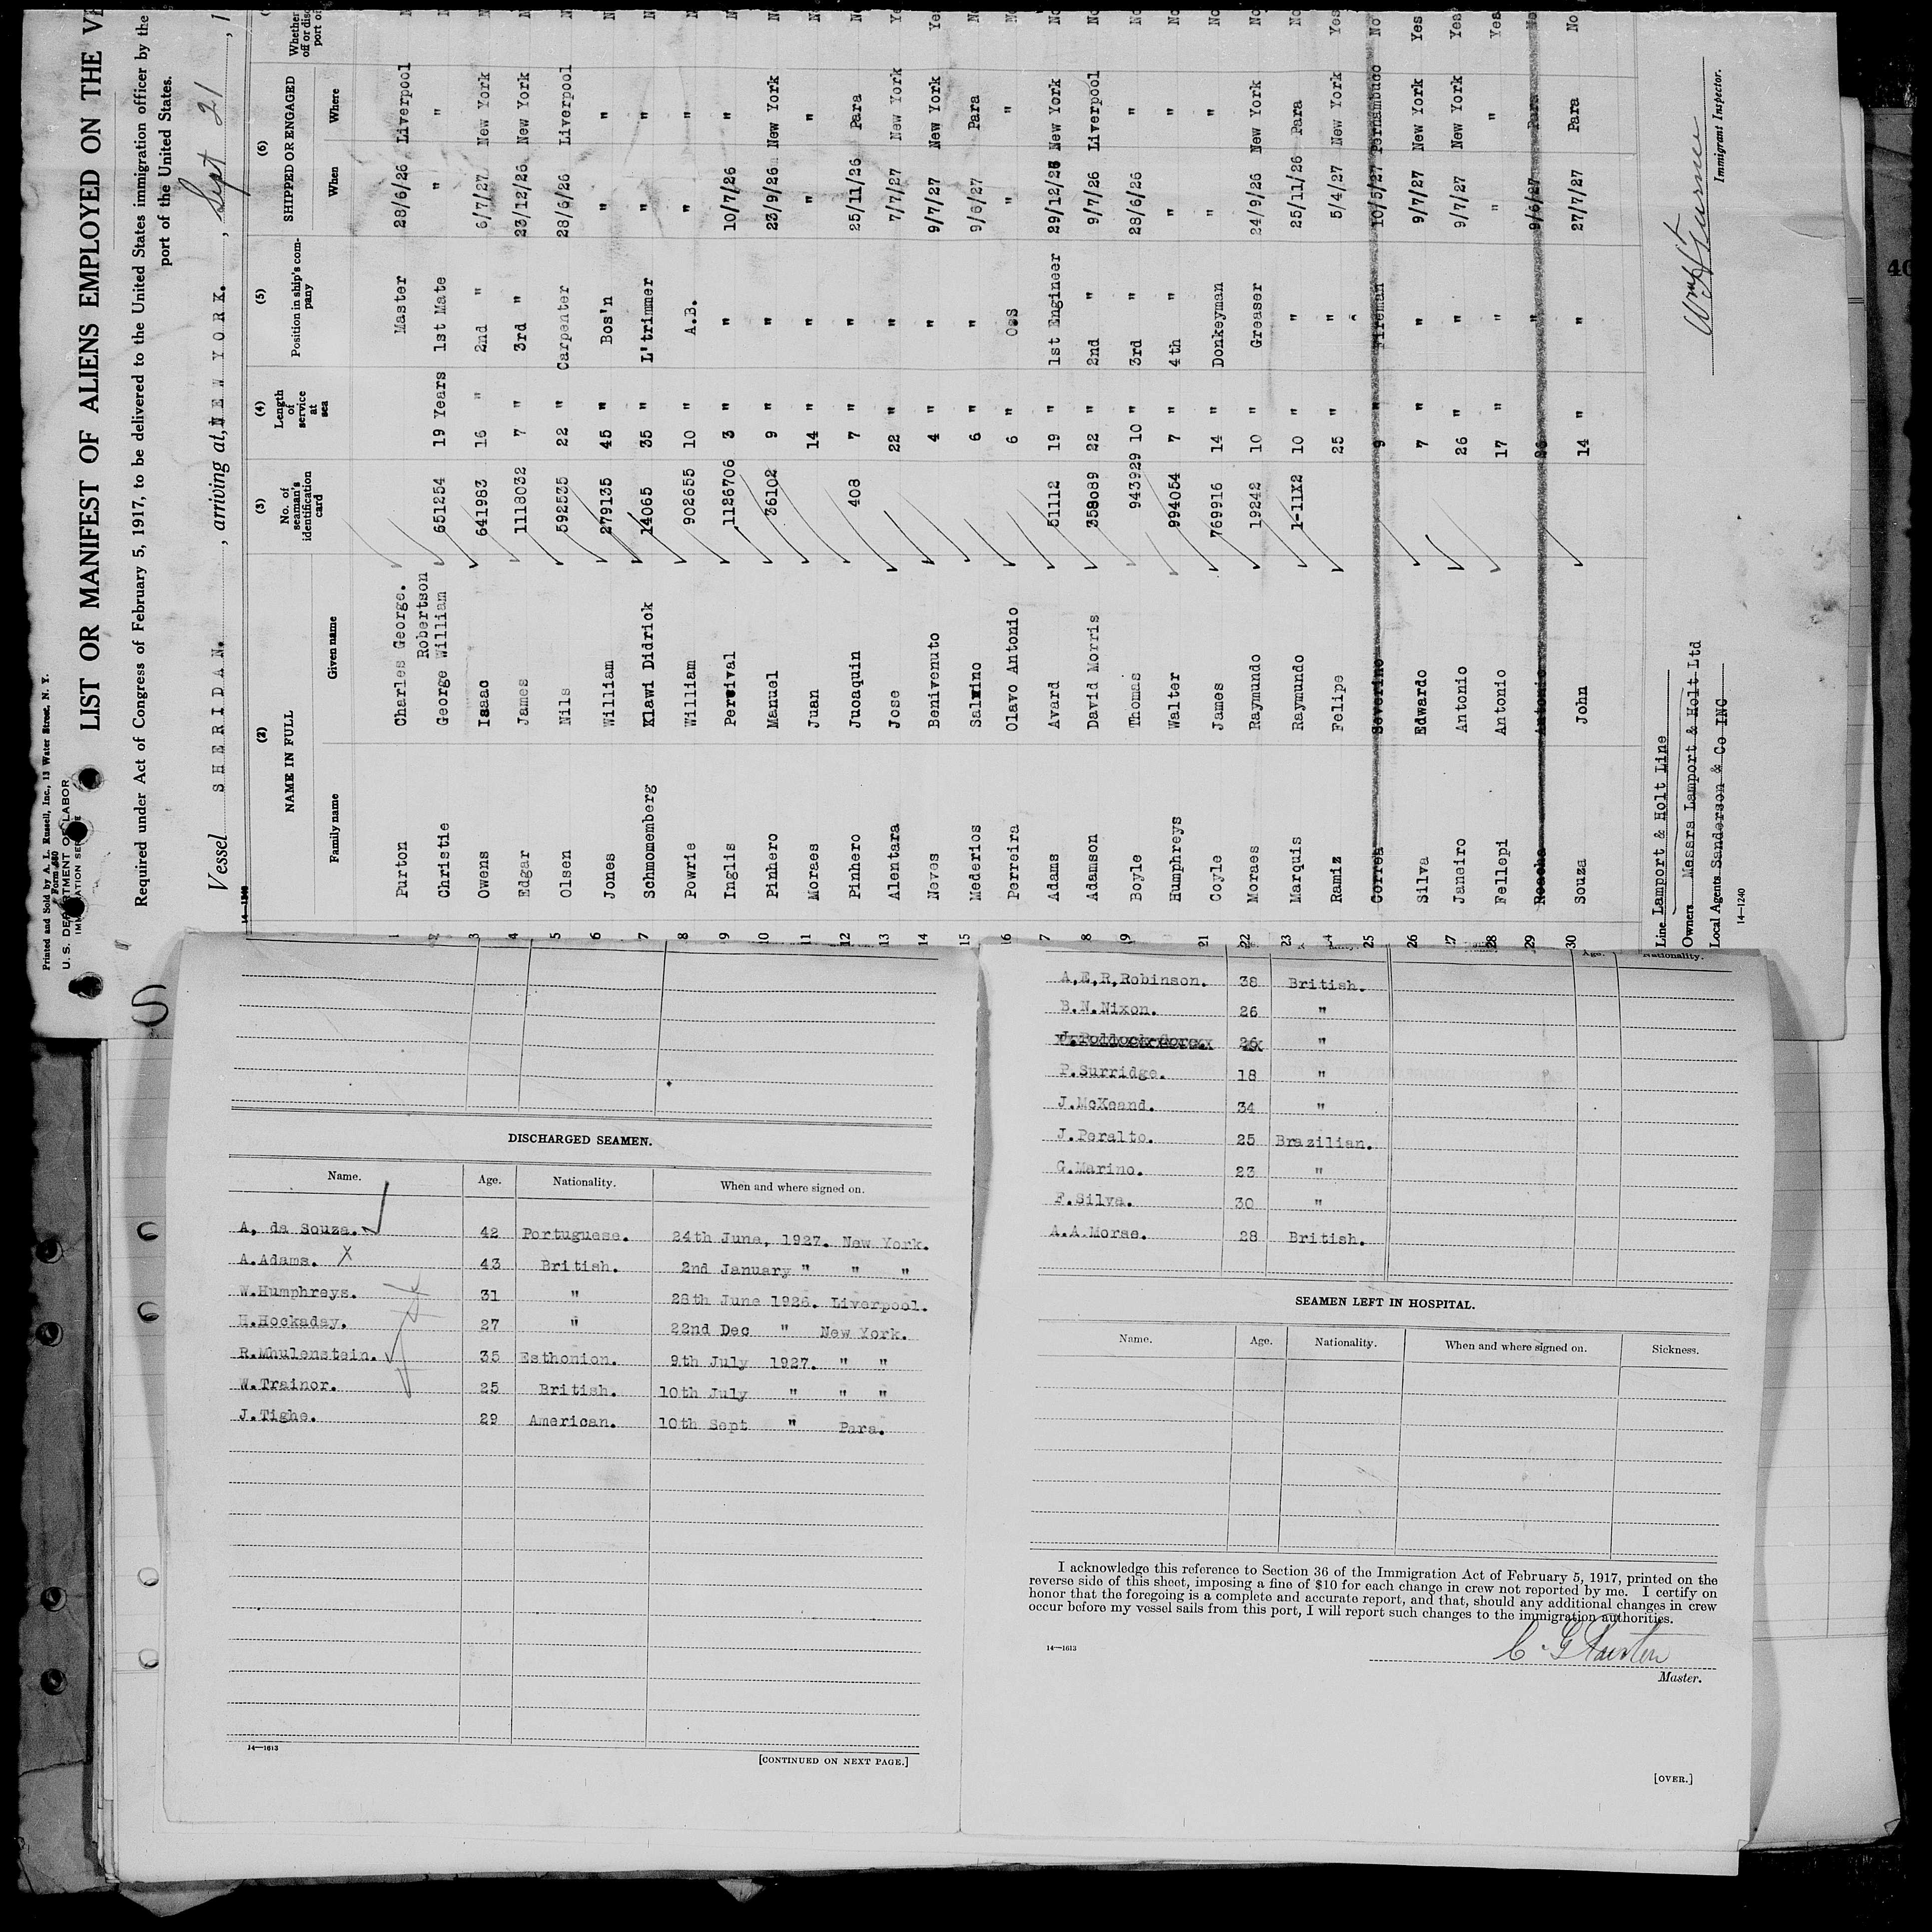 Printed and Sold by A. L. Russell, Inc., 13 Water Street, N. Y.
U. S. DEPARTMENT OF LABOR
LIST OR MANIFEST OF ALIENS EMPLOYED ON THE VE
Required under Act of Congress of February 5, 1917, to be delivered to the United States immigration officer by the
port of the United States.
Vessel SHERIDAN. , arriving at, NEW YORK. , Sept 21 , 1
(2) (3) (4) (5) (6)
NAME IN FULL No. of seaman's identification card Length of service at sea Position in ship's company SHIPPED OR ENGAGED
Family name Given name When Where
1 Purton Charles George. Master 28/6/26 Liverpool
Robertson
2 Christie George William 651254 19 Years 1st Mate " "
3 Owens Isaac 641983 16 " 2nd " 6/7/27 New York
4 Edgar James 1118032 7 " 3rd " 23/12/26 New York
5 Olsen Nils 592535 22 " Carpenter 28/6/26 Liverpool
6 Jones William 279135 45 " Bos'n " "
7 Schmomemberg Klawi Didrick 14065 35 " L'trimmer " "
8 Powrie William 902655 10 " A.B. " "
9 Inglis Percival 1126706 3 " " 10/7/26 "
10 Pinhero Manuel 36102 9 " " 23/9/26 New York
11 Moraes Juan 14 " " " "
12 Pinhero Juoaquin 408 7 " " 25/11/26 Para
13 Alentara Jose 22 " " 7/7/27 New York Ye
14 Neves Benivenuto 4 " " 9/7/27 New York Yes
15 Mederios Salmino 6 " " 9/6/27 Para
16 Perreira Olavo Antonio 6 " OsS " "
7 Adams Avard 51112 19 " 1st Engineer 29/12/26 New York No
8 Adamson David Morris 358089 22 " 2nd " 9/7/26 Liverpool No
19 Boyle Thomas 943929 10 " 3rd " 28/6/26 " No
Humphreys Walter 994054 7 " 4th " " " No
21 Coyle James 769916 14 " Donkeyman " " No
22 Moraes Raymundo 19242 10 " Greaser 24/9/26 New York No
23 Marquis Raymundo 1-11X2 10 " " 25/11/26 Para No
4 Ramiz Felipe 25 " " 5/4/27 New York Yes
25 Correa Severino 9 " Fireman 10/5/27 Pernambuco No
26 Silva Edwardo 7 " " 9/7/27 New York Yes
27 Janeiro Antonio 26 " " 9/7/27 New York Yes
28 Fellepi Antonio 17 " " " " Yes
29 Antonio " 9/6/27 Para No
30 Souza John 14 " " 27/7/27 Para No
Line Lamport & Holt Line
Owners Messrs Lamport & Holt Ltd
Local Agents Sanderson & Co INC
14-1240
Immigrant Inspector.
DISCHARGED SEAMEN.
Name. Age. Nationality. When and where signed on.
A, da Souza. 42 Portuguese. 24th June, 1927. New York.
A.Adams. X 43 British. 2nd January " " "
W.Humphreys. 31 " 28th June 1926. Liverpool.
H.Hockaday. 27 " 22nd Dec " New York.
R.Mhulenstein. 35 Esthonion. 9th July 1927. " "
W.Trainor. 25 British. 10th July " " "
J.Tighe. 29 American. 10th Sept " Para.
14—1613
[CONTINUED ON NEXT PAGE.]
Age. Nationality.
A,E,R,Robinson. 38 British.
B.N.Nixon. 26 "
26 "
P.Surridge. 18 "
J.McKeand. 34 "
J.Peralto. 25 Brazilian.
G.Marino. 23 "
F.Silva. 30 "
A.A.Morse. 28 British.
SEAMEN LEFT IN HOSPITAL.
Name. Age. Nationality. When and where signed on. Sickness.
I acknowledge this reference to Section 36 of the Immigration Act of February 5, 1917, printed on the
reverse side of this sheet, imposing a fine of $10 for each change in crew not reported by me. I certify on
honor that the foregoing is a complete and accurate report, and that, should any additional changes in crew
occur before my vessel sails from this port, I will report such changes to the immigration authorities.
14—1613
C. G Purton
Master.
[OVER.]